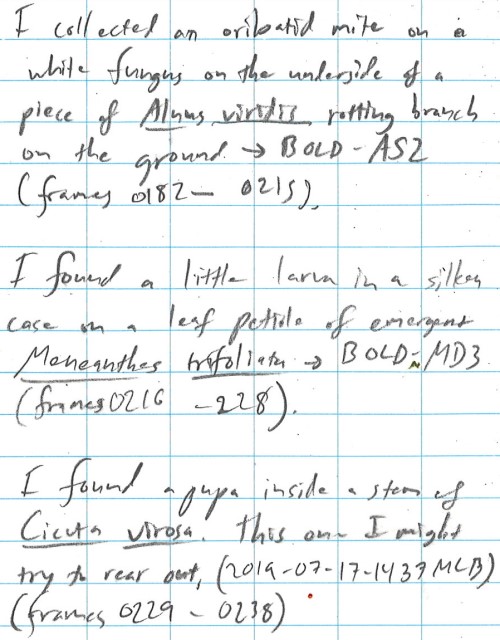 I collected an oribatid mite on a
white fungus on the underside of a
piece of Alnus viridis rotting branch
on the ground → BOLD-AS2
(frames 0182 – 0215).
I found a little larva in a silken
case on a leaf petiole of emergent
Meneanthes trifoliata → BOLD-MD3
(frames 0216 – 228).
I found a pupa inside a stem of
Cicuta virosa. This one I might
try to rear out, (2019-07-17-1437 MLB)
(frames 0229 – 0238)